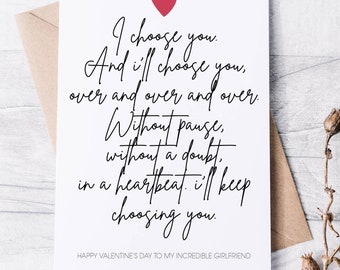 I choose you.
And i'll choose you,
over and over and over.
Without pause,
without a doubt,
in a heartbeat. i'll keep
choosing you.
HAPPY VALENTINE'S DAY TO MY INCREDIBLE GIRLFRIEND